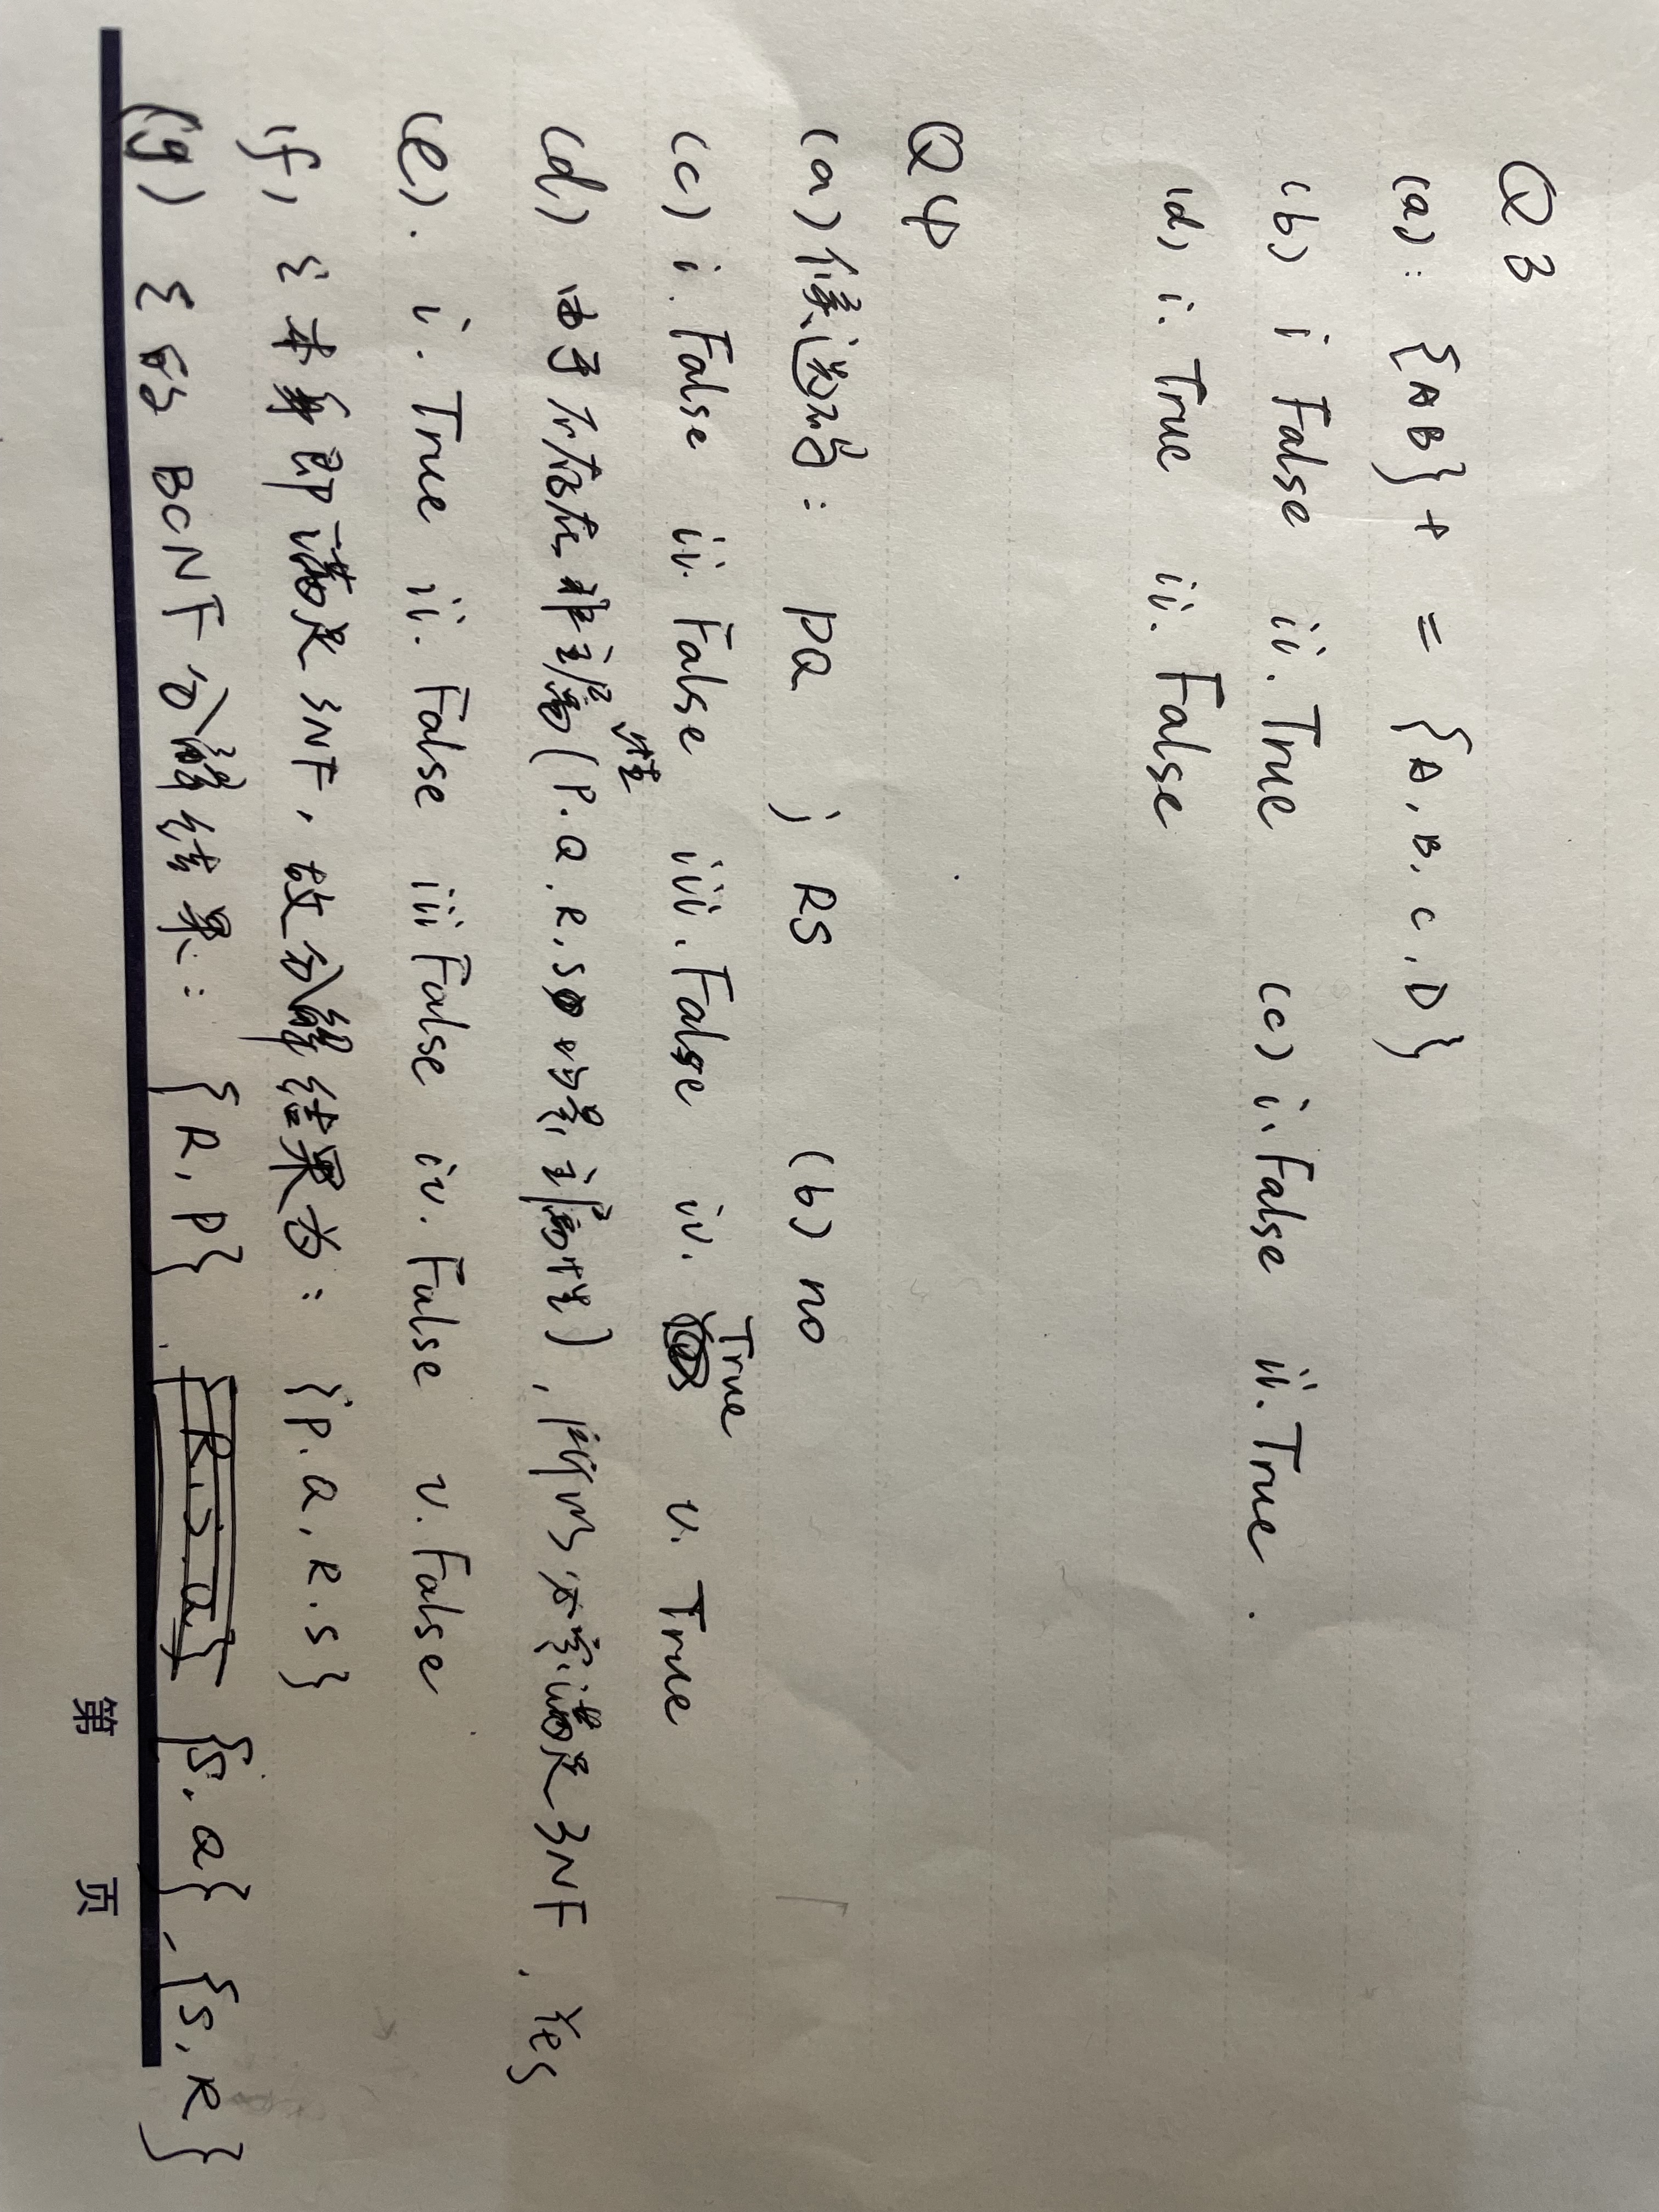 Q3
(a): {AB}+ = {A, B, C, D}
(b) i False ii. True (c) i. False ii. True.
(d) i. True ii. False
Q4
(a) 候选码: PQ ; RS (b) no
(c) i. False ii. False iii. False iv. True v. True
(d) 由于不存在非主属性(P.Q.R.S均是主属性), 所以必定满足3NF, Yes
(e). i. True ii. False iii False iv. False v. False
(f) ξ本身即满足3NF, 故分解结果为: {P.Q,R.S}
(g) ξ的BCNF分解结果: {R,P}, {S.Q}, {S,R}
第 页